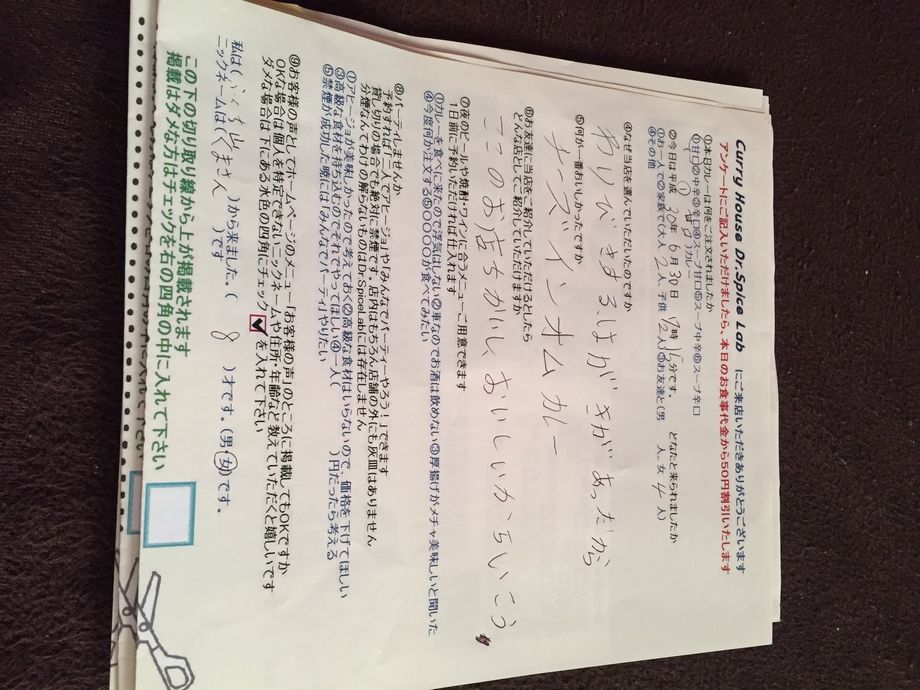 Curry House Dr.Spice Lab にご来店いただきありがとうございます
アンケートにご記入いただけましたら、本日のお食事代金から50円割引いたします
①本日カレーは何をご注文されましたか
①甘口②中辛③辛口④スープ甘口⑤スープ中辛⑥スープ辛口
②今日は平成 30年 6月 30日 時 分です。 どなたと来られましたか
①お一人で②ご家族で(大人 2人、子供 2人)③お友達と(男 人、女 4人)
④その他
④なぜ当店を選んでいただいたのですか
わしびきするはながきがあったから
⑤何が一番おいしかったですか
チーズインオムカレー
⑥お友達に当店をご紹介していただけるとしたら
どんな店としてご紹介していただけますか
ここのお店ちかいし、おいしいからいこう
⑦夜のビールや焼酎・ワインに合うメニューご用意できます
1日前に予約いただければ仕入れます
①カレーを食べに来たので浮気はしない②車なのでお酒は飲めない③厚揚げがメチャ美味しいと聞いた
④今度何か注文する⑤〇〇〇が食べてみたい
⑧パーティしませんか
予約すれば「二人でアヒージョ」や「みんなでパーティーやろう!」できます
貸し切りの場合でも絶対に禁煙です。店内はもちろん店舗の外にも灰皿はありません
分煙なんてわけの解らないものはDr.SpiceLabには存在しません
①アヒージョが美味しかったので考えておく②高級な食材はいらないので、価格を下げてほしい
③高級な食材を持ち込むのでそれでやってほしい④一人( )円だったら考える
⑤禁煙が成功した暁には「みんなでパーティ」やりたい
⑨お客様の声としてホームページのメニュー「お客様の声」のところに掲載してもOKですか
OKな場合は個人を特定できないニックネームや住所・年齢など教えていただくと嬉しいです
ダメな場合は下にある水色の四角にチェック☑を入れて下さい
私は( ふく山 )から来ました。( 8 )才です。(男・女)です。
ニックネームは( くまさん )です
この下の切り取り線から上が掲載されます
掲載はダメな方はチェックを右の四角の中に入れて下さい